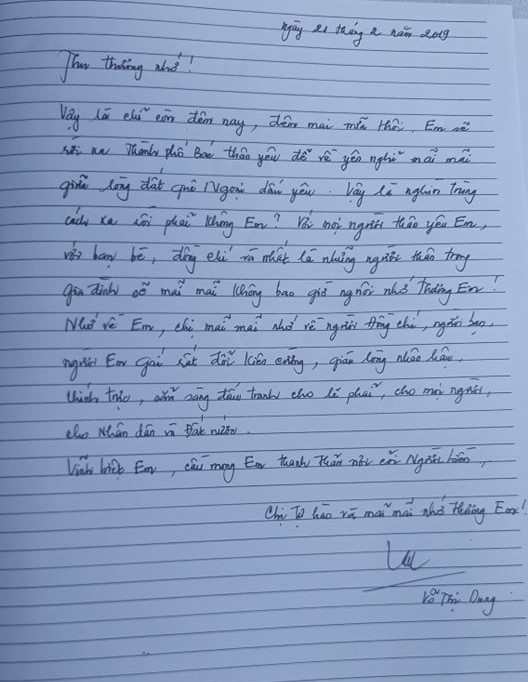 Ngày 21 tháng 2 năm 2019
Thu thương nhớ!
Vậy là chỉ còn đêm nay, đêm mai nữa thôi, Em sẽ
rời xa Thành phố Bác thân yêu để về yên nghỉ mãi mãi
giữa lòng đất quê Ngoại dấu yêu. Vậy là nghìn trùng
cách xa rồi phải không Em? Với mọi người thân yêu Em,
với bạn bè, đồng chí và nhất là những người thân trong
gia đình sẽ mãi mãi không bao giờ nguôi nhớ Thương Em!
Nhớ về Em, chị mãi mãi nhớ về người đồng chí, người bạn,
người Em gái rất đỗi kiên cường, giàu lòng nhân hậu,
chính trực, sẵn sàng đấu tranh cho lẽ phải, cho mọi người,
cho Nhân dân và Đất nước.
Vĩnh biệt Em, cầu mong Em thanh thản nơi cõi Người hiền,
Chị Tự hào và mãi mãi nhớ thương Em!
Võ Thị Dung